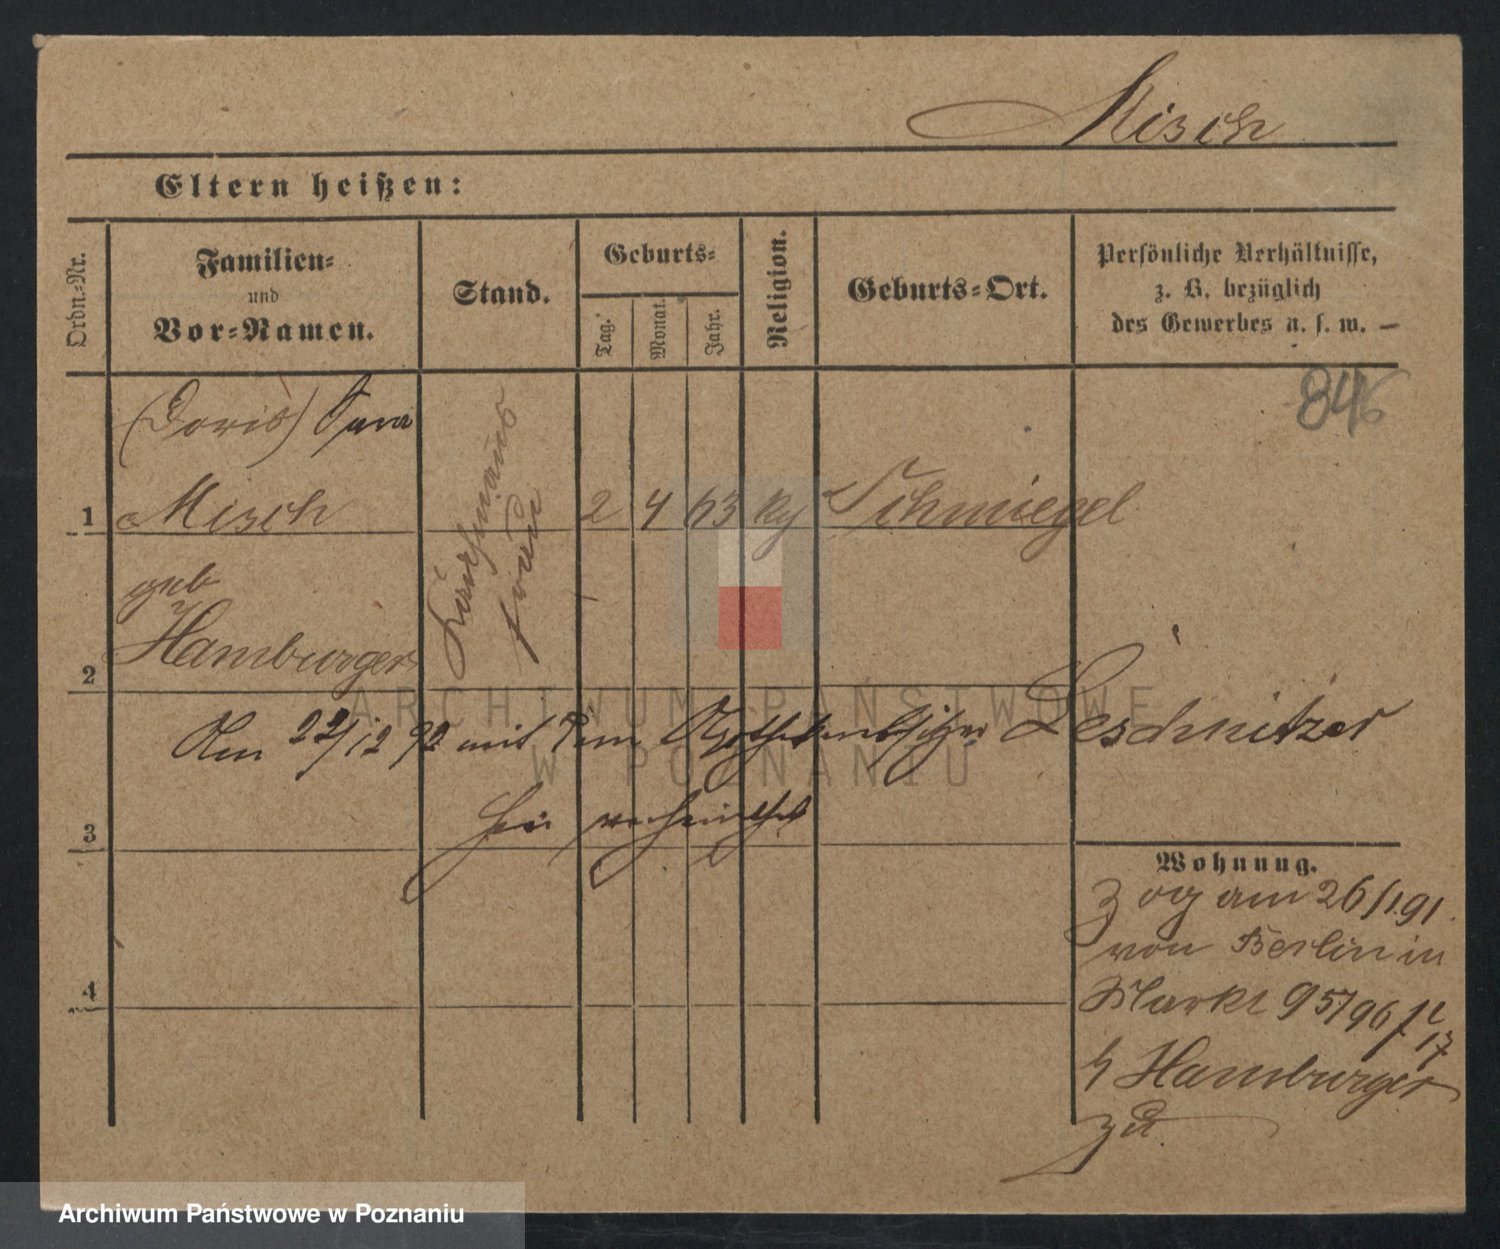 Misch
Eltern heißen:
Ordn.-Nr.
Familien-
und
Vor-Namen.
Stand.
Geburts-
Tag.
Monat.
Jahr.
Religion.
Geburts-Ort.
Persönliche Verhältnisse,
z. B. bezüglich
des Gewerbes u. s. w. —
846
(Doris) Sara
1 Misch
Kaufmanns
frau
2 4 63 Schmiegel
geb
2 Hamburger
Am 22/12 92 mit dem Apothekenbesitzer Leschnitzer
hier verheirathet
3
4
Wohnung.
Zog am 26/1.91.
von Berlin in
Markt 95/96
Hamburger
zu.
ARCHIWUM PAŃSTWOWE
W POZNANIU
Archiwum Państwowe w Poznaniu